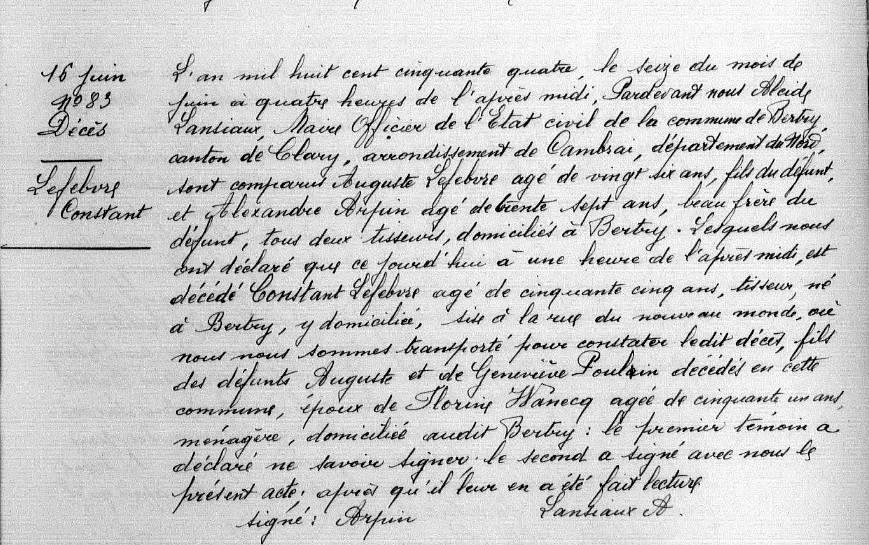 16 juin
Nº 83
Décès
Lefebvre
Constant
L'an mil huit cent cinquante quatre, le seize du mois de
juin à quatre heures de l'après midi, Pardevant nous Alcide
Lansiaux, Maire Officier de l'Etat civil de la commune de Bertry,
canton de Clary, arrondissement de Cambrai, département du Nord,
sont comparus Auguste Lefebvre agé de vingt six ans, fils du défunt,
et Alexandre Arpin agé de trente sept ans, beau frère du
défunt, tous deux tisseurs, domiciliés à Bertry. Lesquels nous
ont déclaré que ce jourd'hui à une heure de l'après midi, est
décédé Constant Lefebvre agé de cinquante cinq ans, tisseur, né
à Bertry, y domicilié, sise à la rue du nouveau monde, où
nous nous sommes transporté pour constater ledit décès, fils
des défunts Auguste et de Geneviève Poulain décédés en cette
commune, époux de Florine Wanecq agée de cinquante un ans,
ménagère, domiciliée audit Bertry : le premier témoin a
déclaré ne savoir signer, le second a signé avec nous le
présent acte, après qu'il leur en a été fait lecture
signé : Arpin Lansiaux A.